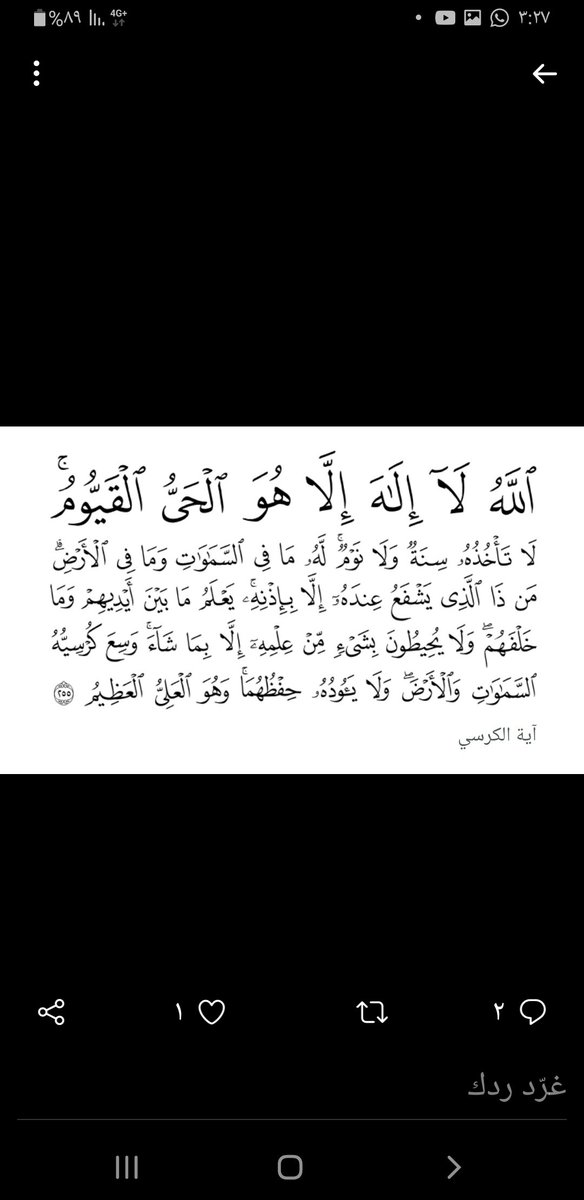 %٨٩ 4G+ ٣:٢٧
ٱللَّهُ لَآ إِلَٰهَ إِلَّا هُوَ ٱلْحَىُّ ٱلْقَيُّومُ ۚ
لَا تَأْخُذُهُۥ سِنَةٌ وَلَا نَوْمٌ ۚ لَّهُۥ مَا فِى ٱلسَّمَٰوَٰتِ وَمَا فِى ٱلْأَرْضِ ۗ
مَن ذَا ٱلَّذِى يَشْفَعُ عِندَهُۥٓ إِلَّا بِإِذْنِهِۦ ۚ يَعْلَمُ مَا بَيْنَ أَيْدِيهِمْ وَمَا
خَلْفَهُمْ ۖ وَلَا يُحِيطُونَ بِشَىْءٍ مِّنْ عِلْمِهِۦٓ إِلَّا بِمَا شَآءَ ۚ وَسِعَ كُرْسِيُّهُ
ٱلسَّمَٰوَٰتِ وَٱلْأَرْضَ ۖ وَلَا يَـُٔودُهُۥ حِفْظُهُمَا ۚ وَهُوَ ٱلْعَلِىُّ ٱلْعَظِيمُ ٢٥٥
آية الكرسي
٢ ١
غرّد ردك